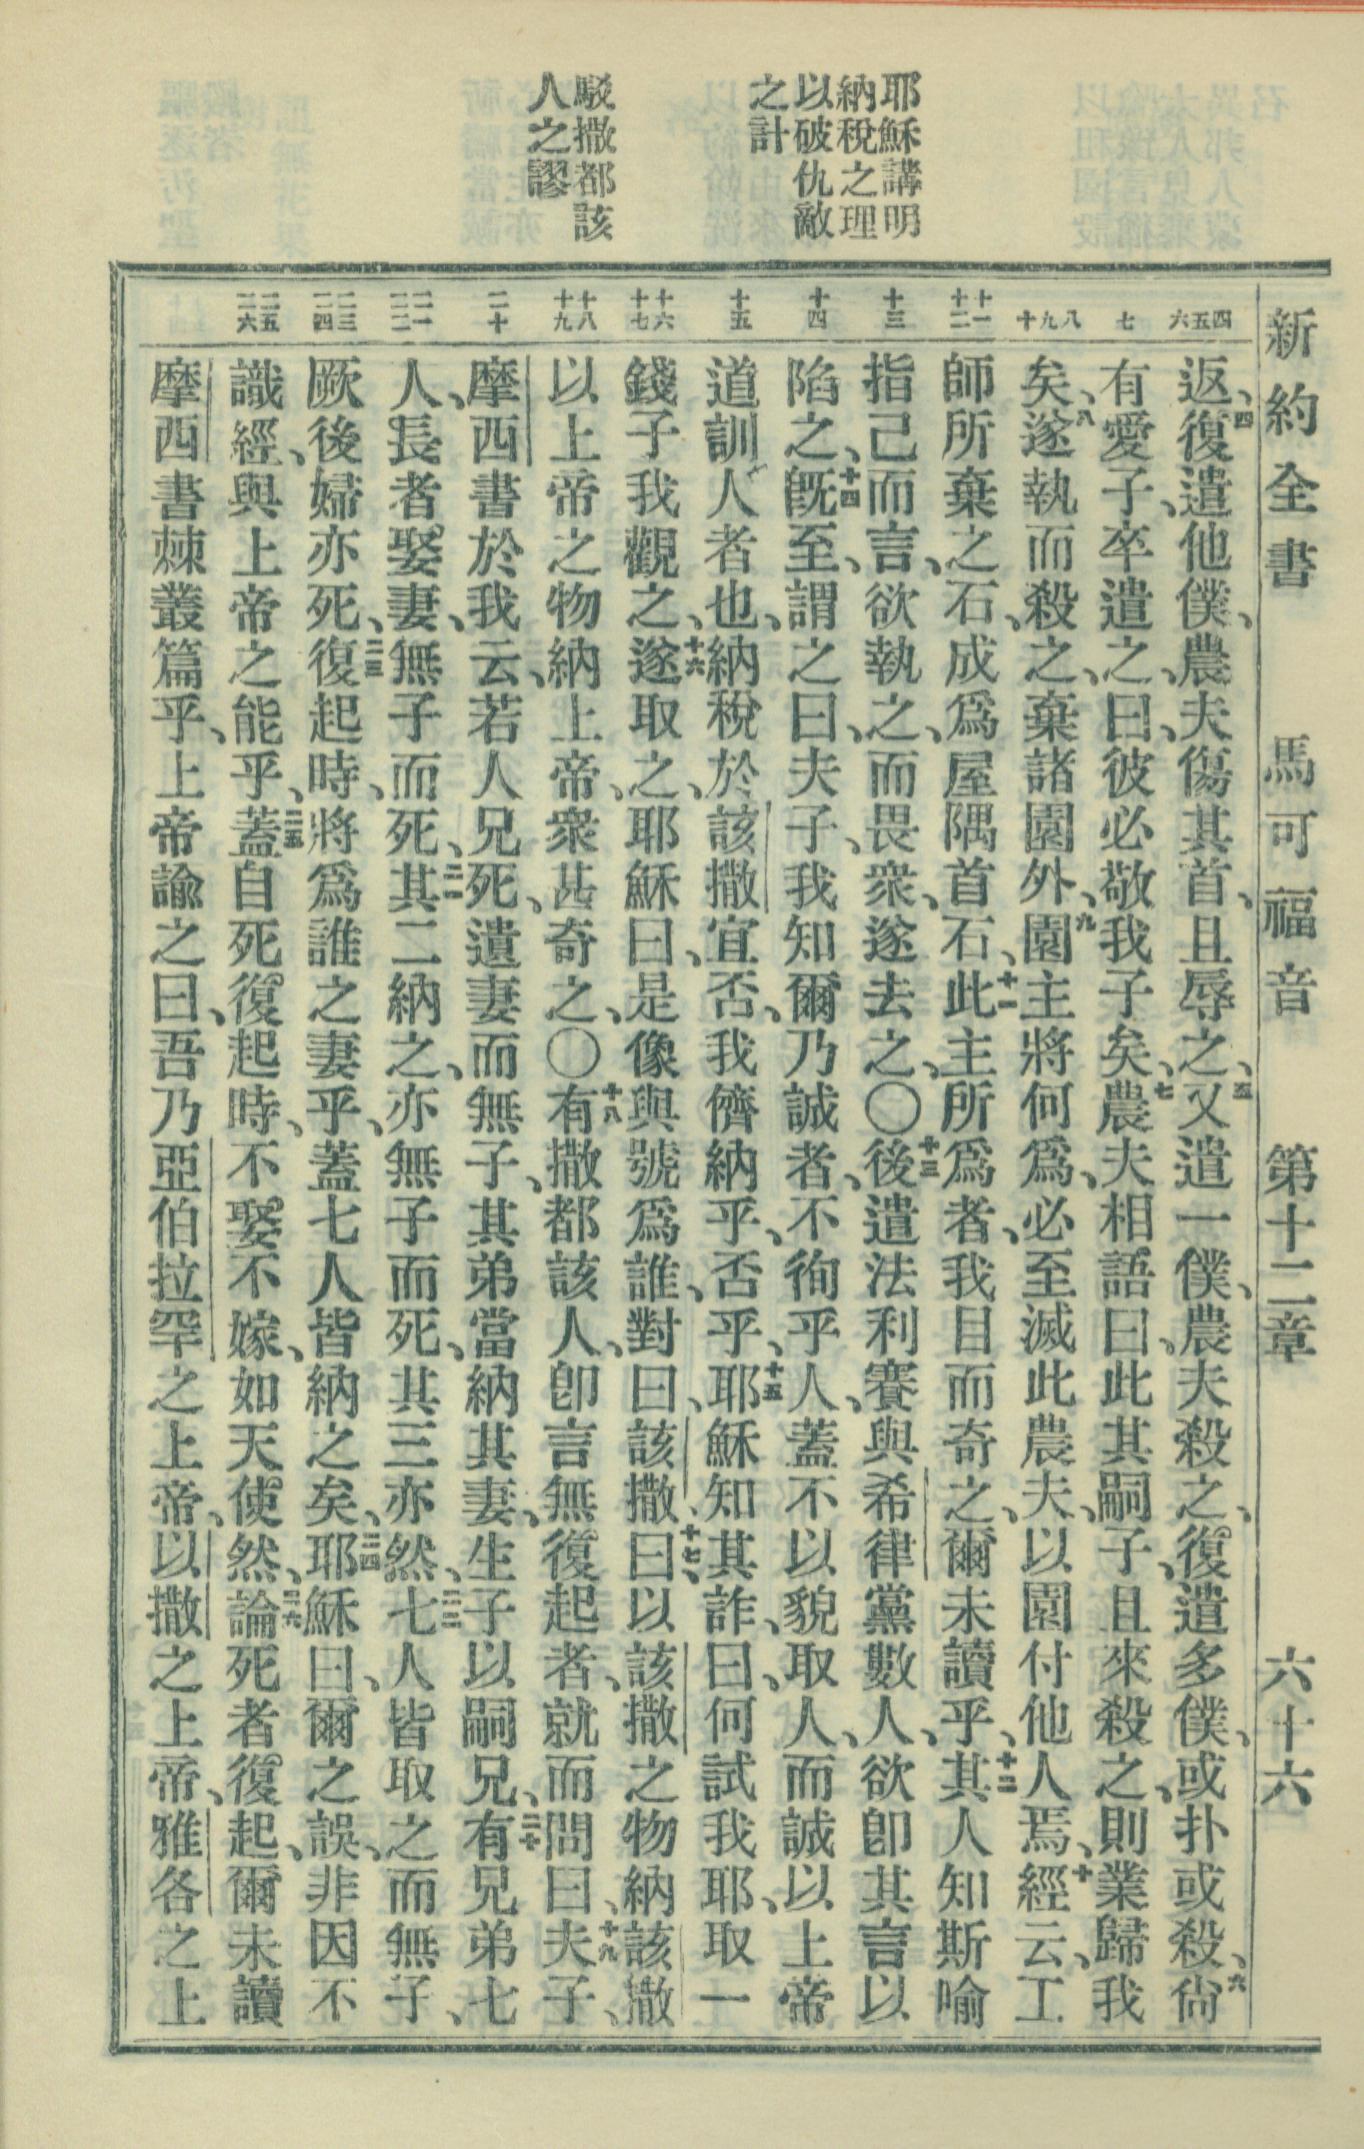 新約全書 馬可福音 第十二章 六十六
耶穌講明
納稅之理
以破仇敵
之計
駁撒都該
人之謬
四五六
七
八九十
十一十二
十三
十四
十五
十六十七
十八十九
二十
二一二二
二三二四
二五二六
返、四復遣他僕、農夫傷其首、且辱之、五又遣一僕、農夫殺之、復遣多僕、或扑或殺、六尙
有愛子、卒遣之、曰、彼必敬我子矣、七農夫相語曰、此其嗣子、且來殺之、則業歸我
矣、八遂執而殺之、棄諸園外、九園主將何爲、必至滅此農夫、以園付他人焉、十經云、工
師所棄之石、成爲屋隅首石、十一此主所爲者、我目而奇之、爾未讀乎、十二其人知斯喻
指己而言、欲執之、而畏衆、遂去之、〇十三後遣法利賽與希律黨數人、欲卽其言以
陷之、十四旣至、謂之曰、夫子、我知爾乃誠者、不徇乎人、蓋不以貌取人、而誠以上帝
道訓人者也、納稅於該撒宜否、我儕納乎、否乎、十五耶穌知其詐、曰、何試我耶、取一
錢子我觀之、十六遂取之、耶穌曰、是像與號爲誰、對曰、該撒、十七曰、以該撒之物納該撒
以上帝之物納上帝、衆甚奇之、〇十八有撒都該人、卽言無復起者、就而問曰、十九夫子、
摩西書於我云、若人兄死、遺妻而無子、其弟當納其妻、生子以嗣兄、二十有兄弟七
人、長者娶妻、無子而死、二一其二納之、亦無子而死、其三亦然、二二七人皆取之而無子、
厥後婦亦死、二三復起時、將爲誰之妻乎、蓋七人皆納之矣、二四耶穌曰、爾之誤、非因不
識經、與上帝之能乎、二五蓋自死復起時、不娶不嫁、如天使然、二六論死者復起、爾未讀
摩西書棘叢篇乎、上帝諭之曰、吾乃亞伯拉罕之上帝、以撒之上帝、雅各之上